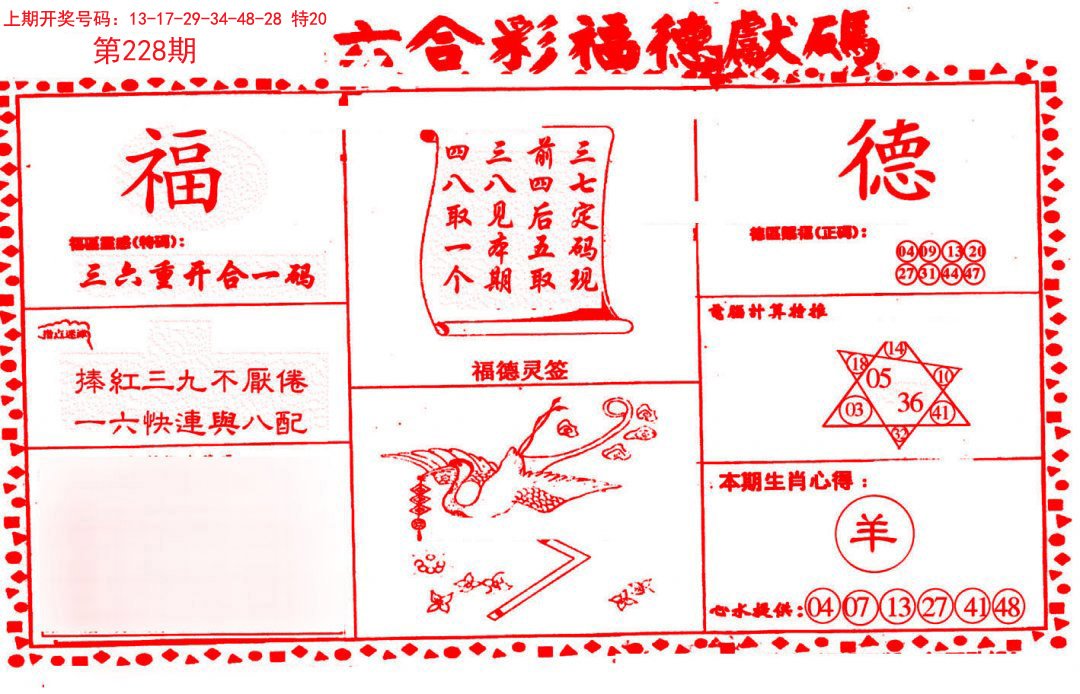 上期开奖号码：13-17-29-34-48-28 特20
第228期
六合彩福德獻碼
福
福區靈感(特碼)：
三六重开合一码
指点迷津
捧紅三九不厭倦
一六快連與八配
三七定码现
前四后五取
三八见本期
四八取一个
福德灵签
德
德區賜福(正碼)：
04 09 13 20
27 31 44 47
電腦計算精推
14
18 10
05
36
03 41
32
本期生肖心得：
羊
心水提供：04 07 13 27 41 48